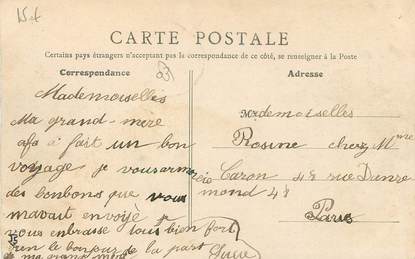 CARTE POSTALE
Certains pays étrangers n'acceptant pas la correspondance de ce côté, se renseigner à la Poste
Correspondance
Mademoiselles
Ma grand-mère
afa à fait un bon
voyage je vous
des bonbons que vous
mavait envoyé je
vous enbrasse tous bien fort
bien le bonjour de la part
de ma grand mère
Adresse
Mademoiselles
Rosine cherz Mme
Caron 48 rue
mond 48
Paris